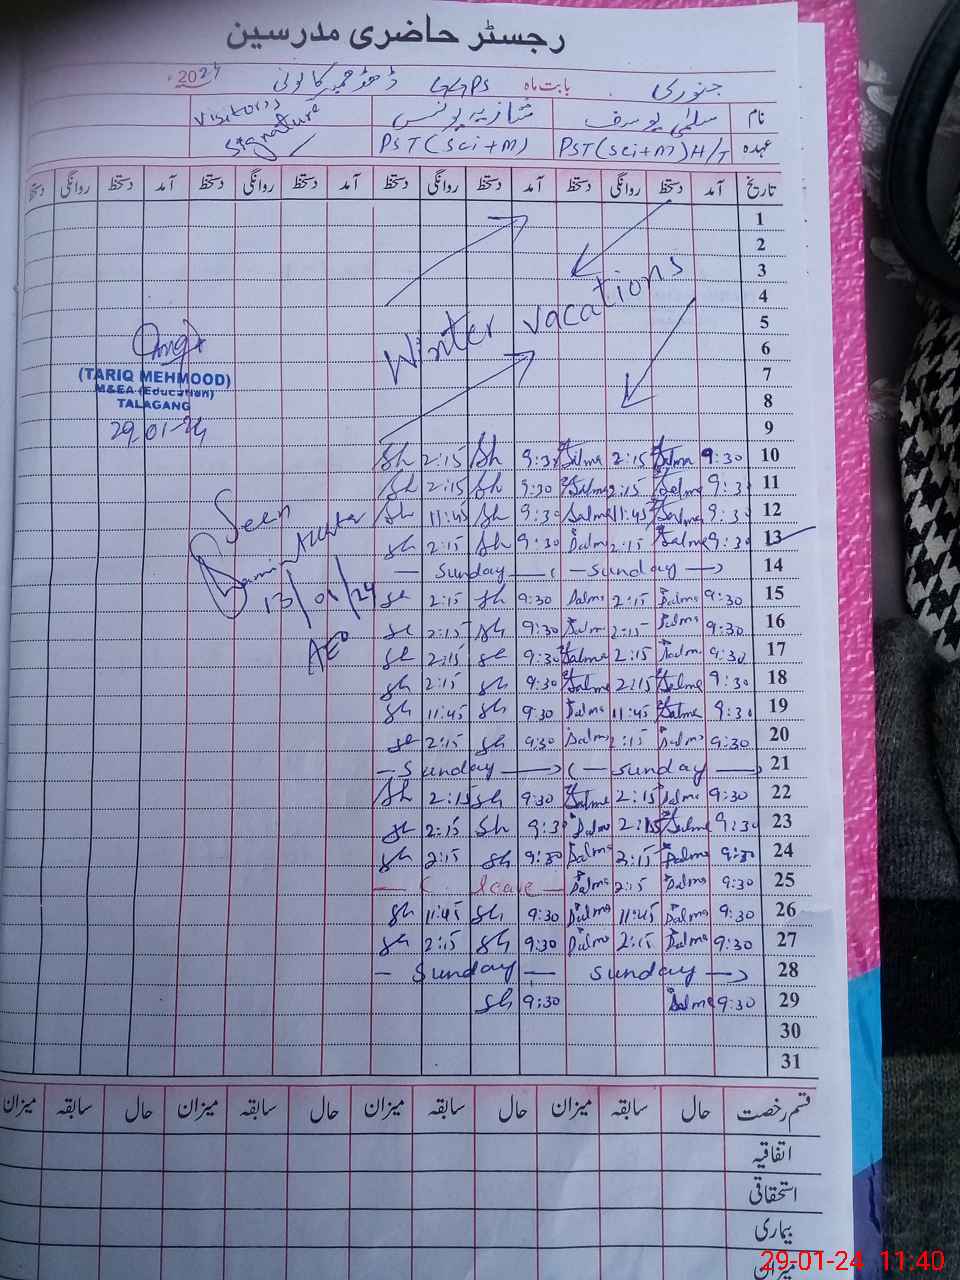 رجسٹر حاضری مدرسین
جنوری بابت ماہ GGPS 2024
نام سلمیٰ یوسف شازیہ یونس Visitor's Signature
عہدہ PST(Sci+m) H/T PST(Sci+m)
تاریخ آمد دستخط روانگی دستخط آمد دستخط روانگی دستخط آمد دستخط روانگی دستخط آمد دستخط روانگی دستخط
1
2
3
4
5
6
7
8
9
Winter vacations
(TARIQ MEHMOOD)
M&EA (Education)
TALAGANG
29.01-24
10 9:30 Salma 2:15 Salma 9:30 Sh 2:15 Sh
11 9:30 Salma 2:15 Salma 9:30 Sh 2:15 Sh
12 9:30 Salma 11:45 Salma 9:30 Sh 11:45 Sh
13 9:30 Salma 2:15 Salma 9:30 Sh 2:15 Sh
Seen
13/01/24
AEO
14 Sunday Sunday
15 9:30 Salma 2:15 Salma 9:30 Sh 2:15 Sh
16 9:30 Salma 2:15 Salma 9:30 Sh 2:15 Sh
17 9:30 Salma 2:15 Salma 9:30 Sh 2:15 Sh
18 9:30 Salma 2:15 Salma 9:30 Sh 2:15 Sh
19 9:30 Salma 11:45 Salma 9:30 Sh 11:45 Sh
20 9:30 Salma 2:15 Salma 9:30 Sh 2:15 Sh
21 Sunday Sunday
22 9:30 Salma 2:15 Salma 9:30 Sh 2:15 Sh
23 9:30 Salma 2:15 Salma 9:30 Sh 2:15 Sh
24 9:30 Salma 2:15 Salma 9:30 Sh 2:15 Sh
25 9:30 Salma 2:15 Salma leave
26 9:30 Salma 11:45 Salma 9:30 Sh 11:45 Sh
27 9:30 Salma 2:15 Salma 9:30 Sh 2:15 Sh
28 Sunday Sunday
29 9:30 Salma 9:30 Sh
30
31
قسم رخصت حال سابقہ میزان حال سابقہ میزان حال سابقہ میزان حال سابقہ میزان
اتفاقیہ
استحقاقی
بیماری
29-01-24 11:40